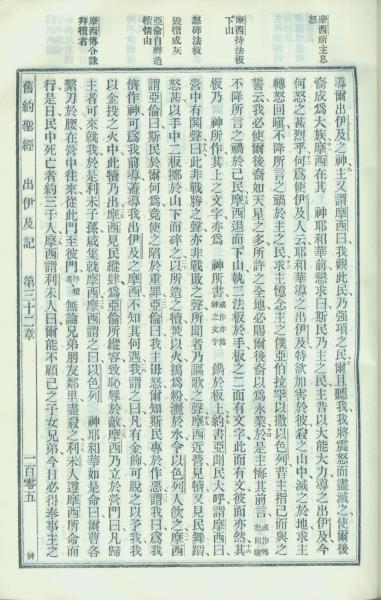 摩西所主息怒
摩西持法板下山
怒碎法板
毀犢成灰
亞倫自辨造犢情由
摩西傳令誅拜犢者
導爾出伊及之神主又謂摩西曰我觀此民乃強項之民爾且聽我我將震怒而盡滅之使爾後
裔成爲大族摩西在其 神耶和華前懇求曰斯民乃主之民主昔以大能大力導之出伊及今
何怒之甚烈乎何爲使伊及人云耶和華導之出伊及特欲加害於彼殺之山中滅之於地求主
轉怒回不降所言之禍於主之民求主憶念主之僕亞伯拉罕以撒以色列昔主指己而與之
誓云我必使爾後裔如天星之多所許之全地必賜爾後裔以爲永業於是主悔其前言
不降所言之禍於己民摩西退而下山執二法板於手板之二面有文字此面有文彼面亦然其
板乃 神所作其上之文字亦爲 神所書 或作亦爲神文字 鐫於板上約書亞聞民大呼謂摩西曰
營中有鬬聲曰此非戰勝之聲亦非戰敗之聲所聞者乃謳歌之聲摩西近營見犢又見民舞蹈
怒甚以手中二板擲於山下而碎之以所造之犢焚以火搗爲粉灑於水令以色列人飲之摩西
謂亞倫曰斯民於爾何爲竟使之陷於重罪亞倫曰我主毋怒爾知斯民專於作惡謂我曰爲我
儕作神可爲我前導蓋導我出伊及之摩西不知其何遇我謂之曰凡有金飾可脫之以予我我
以金投之火中此犢乃出摩西見民縱肆爲亞倫所縱容致恥辱於敵摩西乃立於營門曰凡歸
主者可來就我於是利未子孫咸集就摩西摩西謂之曰以色列 神耶和華如是命曰爾曹各
繫刀於腰在營中往來從此門至彼門 無論兄弟朋友鄰里盡殺之利未人遵摩西所命而
行是日民中死亡者約三千人摩西謂利未人曰爾能不顧己之子女兄弟今日必得奉事主之
舊約聖經 出伊及記 第三十二章 一百零五 神